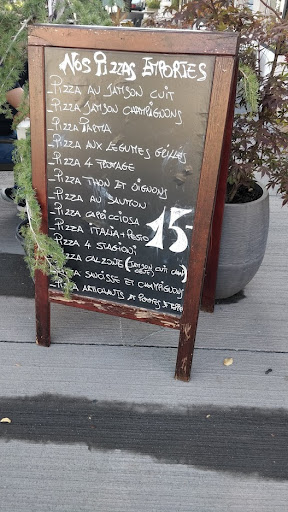 Nos Pizzas Emportés
_Pizza au Jamson cuit
_Pizza Jamson Champignons
_Pizza Parma
_Pizza aux legumes grilles
_Pizza 4 fromage
_Pizza Thon et oignons
_Pizza au Saumon
_Pizza Capricciosa
_Pizza Italia + Pesto
_Pizza 4 Stagioni
_Pizza Calzone (Jamson cuit
15.-
_Pizza Saucisse et champignons
_Pizza artichauts et Pommes de Terre